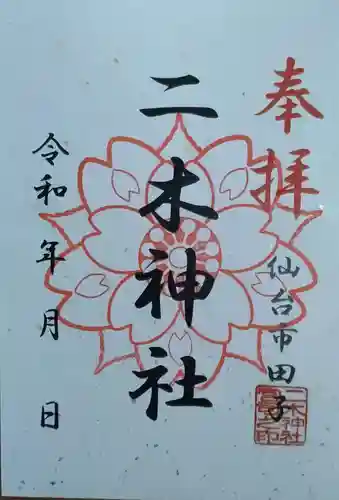 奉拝
仙台市田子
二木神社
令和 年 月 日